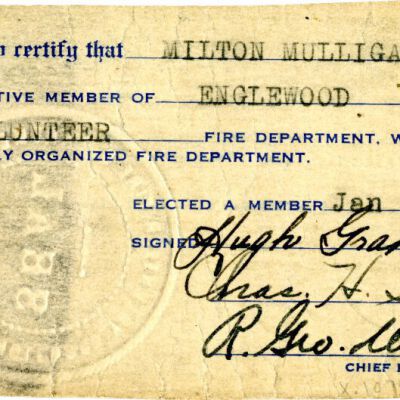 certify that MILTON MULLIGA
TIVE MEMBER OF ENGLEWOOD
LUNTEER FIRE DEPARTMENT, W
LY ORGANIZED FIRE DEPARTMENT.
ELECTED A MEMBER Jan
SIGNED Hugh Gra
Chas. H.
R. Geo.
CHIEF